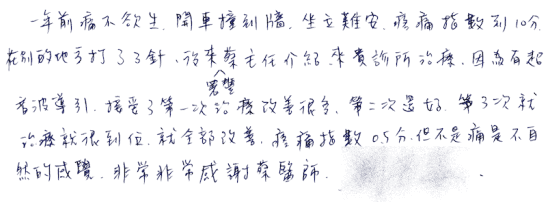 一年前痛不欲生, 開車撞到牆, 坐立難安, 疼痛指數到10分
在別的地方打了3針, 後來蔡主任介紹來貴診所治療, 因為有超
音波導引, 接受了第一次治療改善很多, 第二次還好, 第3次就
治療就很到位, 就全部改善, 疼痛指數0.5分, 但不是痛是不自
然的感覺, 非常非常感謝蔡醫師.